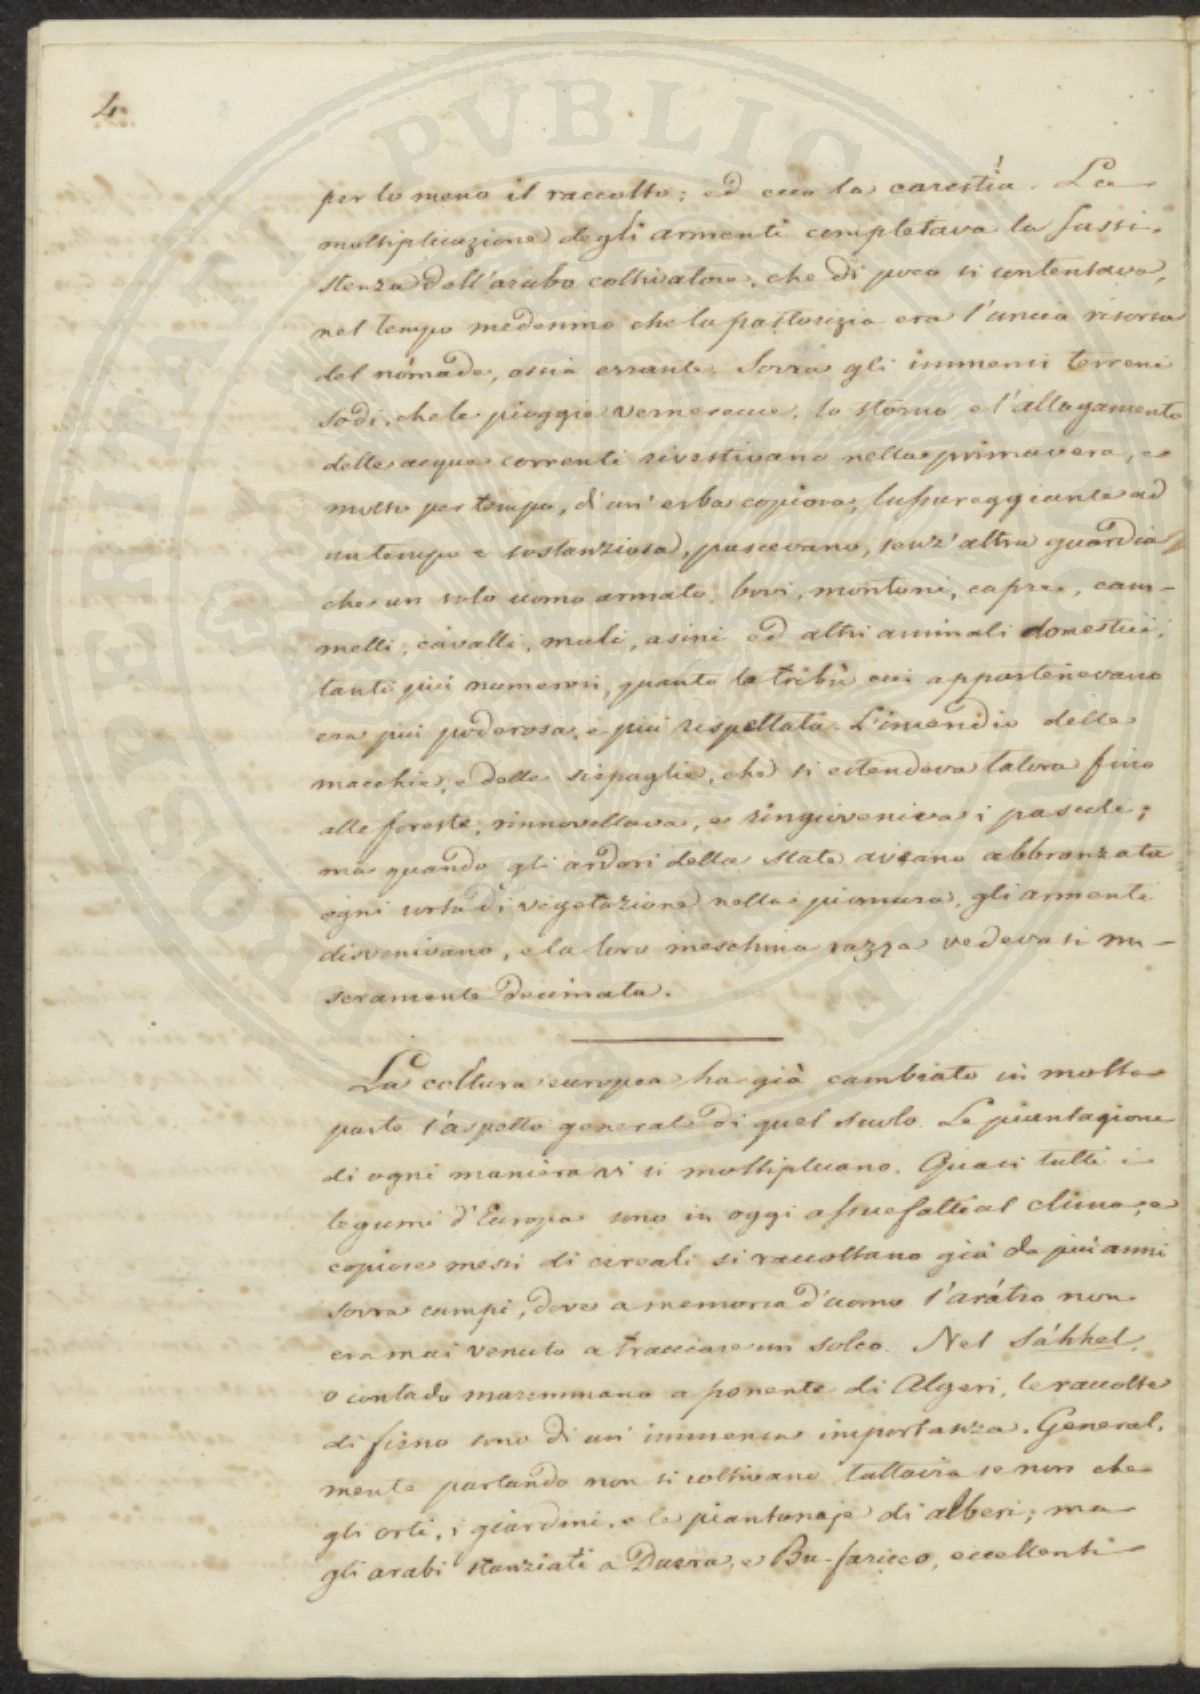 4.
per lo meno il raccolto; ed ecco la carestia! La
multiplicazione degli armenti completava la sussi-
stenza dell'arabo coltivatore, che di poco si contentava,
nel tempo medesimo che la pastorizia era l'unica risorsa
del nómade, ossia errante. Sovra gli immensi terreni
sodi, che le pioggie vernerecce, lo storno e l'allagamento
delle acque correnti rivestivano nella primavera, e
molto per tempo, d'un'erba copiosa, lussureggiante ad
un tempo e sostanziosa, pascevano, senz'altra guardia
che un solo uomo armato, bovi, montoni, capre, cam-
melli, cavalli, muli, asini ed altri animali domestici,
tanti più numerosi, quanto la tribù cui appartenevano
era più poderosa, e più rispettata. L'incendio delle
macchie, e delle siepaglie, che si estendeva talora fino
alle foreste, rinnovellava, e ringiovaniva i pascoli;
ma quando gli ardori della state aveano abbronzata
ogni sorta di vegetazione nella pianura, gli armenti
disvenivano, e la loro meschina razza vedevasi mi-
seramente decimata.
La coltura europea ha già cambiato in molte
parte l'aspetto generale di quel suolo. Le piantagione
di ogni maniera vi si moltiplicano. Quasi tutti i
legumi d'Europa sono in oggi assuefatti al clima, e
copiose messi di cereali si raccoltano già da più anni
sovra campi, dove a memoria d'uomo l'arátro non
era mai venuto a tracciare un solco. Nel Sáhhel,
o contado maremmano a ponente di Algeri, le raccolte
di fieno sono di un'immensa importanza. General-
mente parlando non si coltivano tuttavia se non che
gli orti, i giardini, e le piantonaje di alberi; ma
gli arabi stanziati a Duera, e Bu-farico, eccellenti
PROSPERITATI PUBLICAE